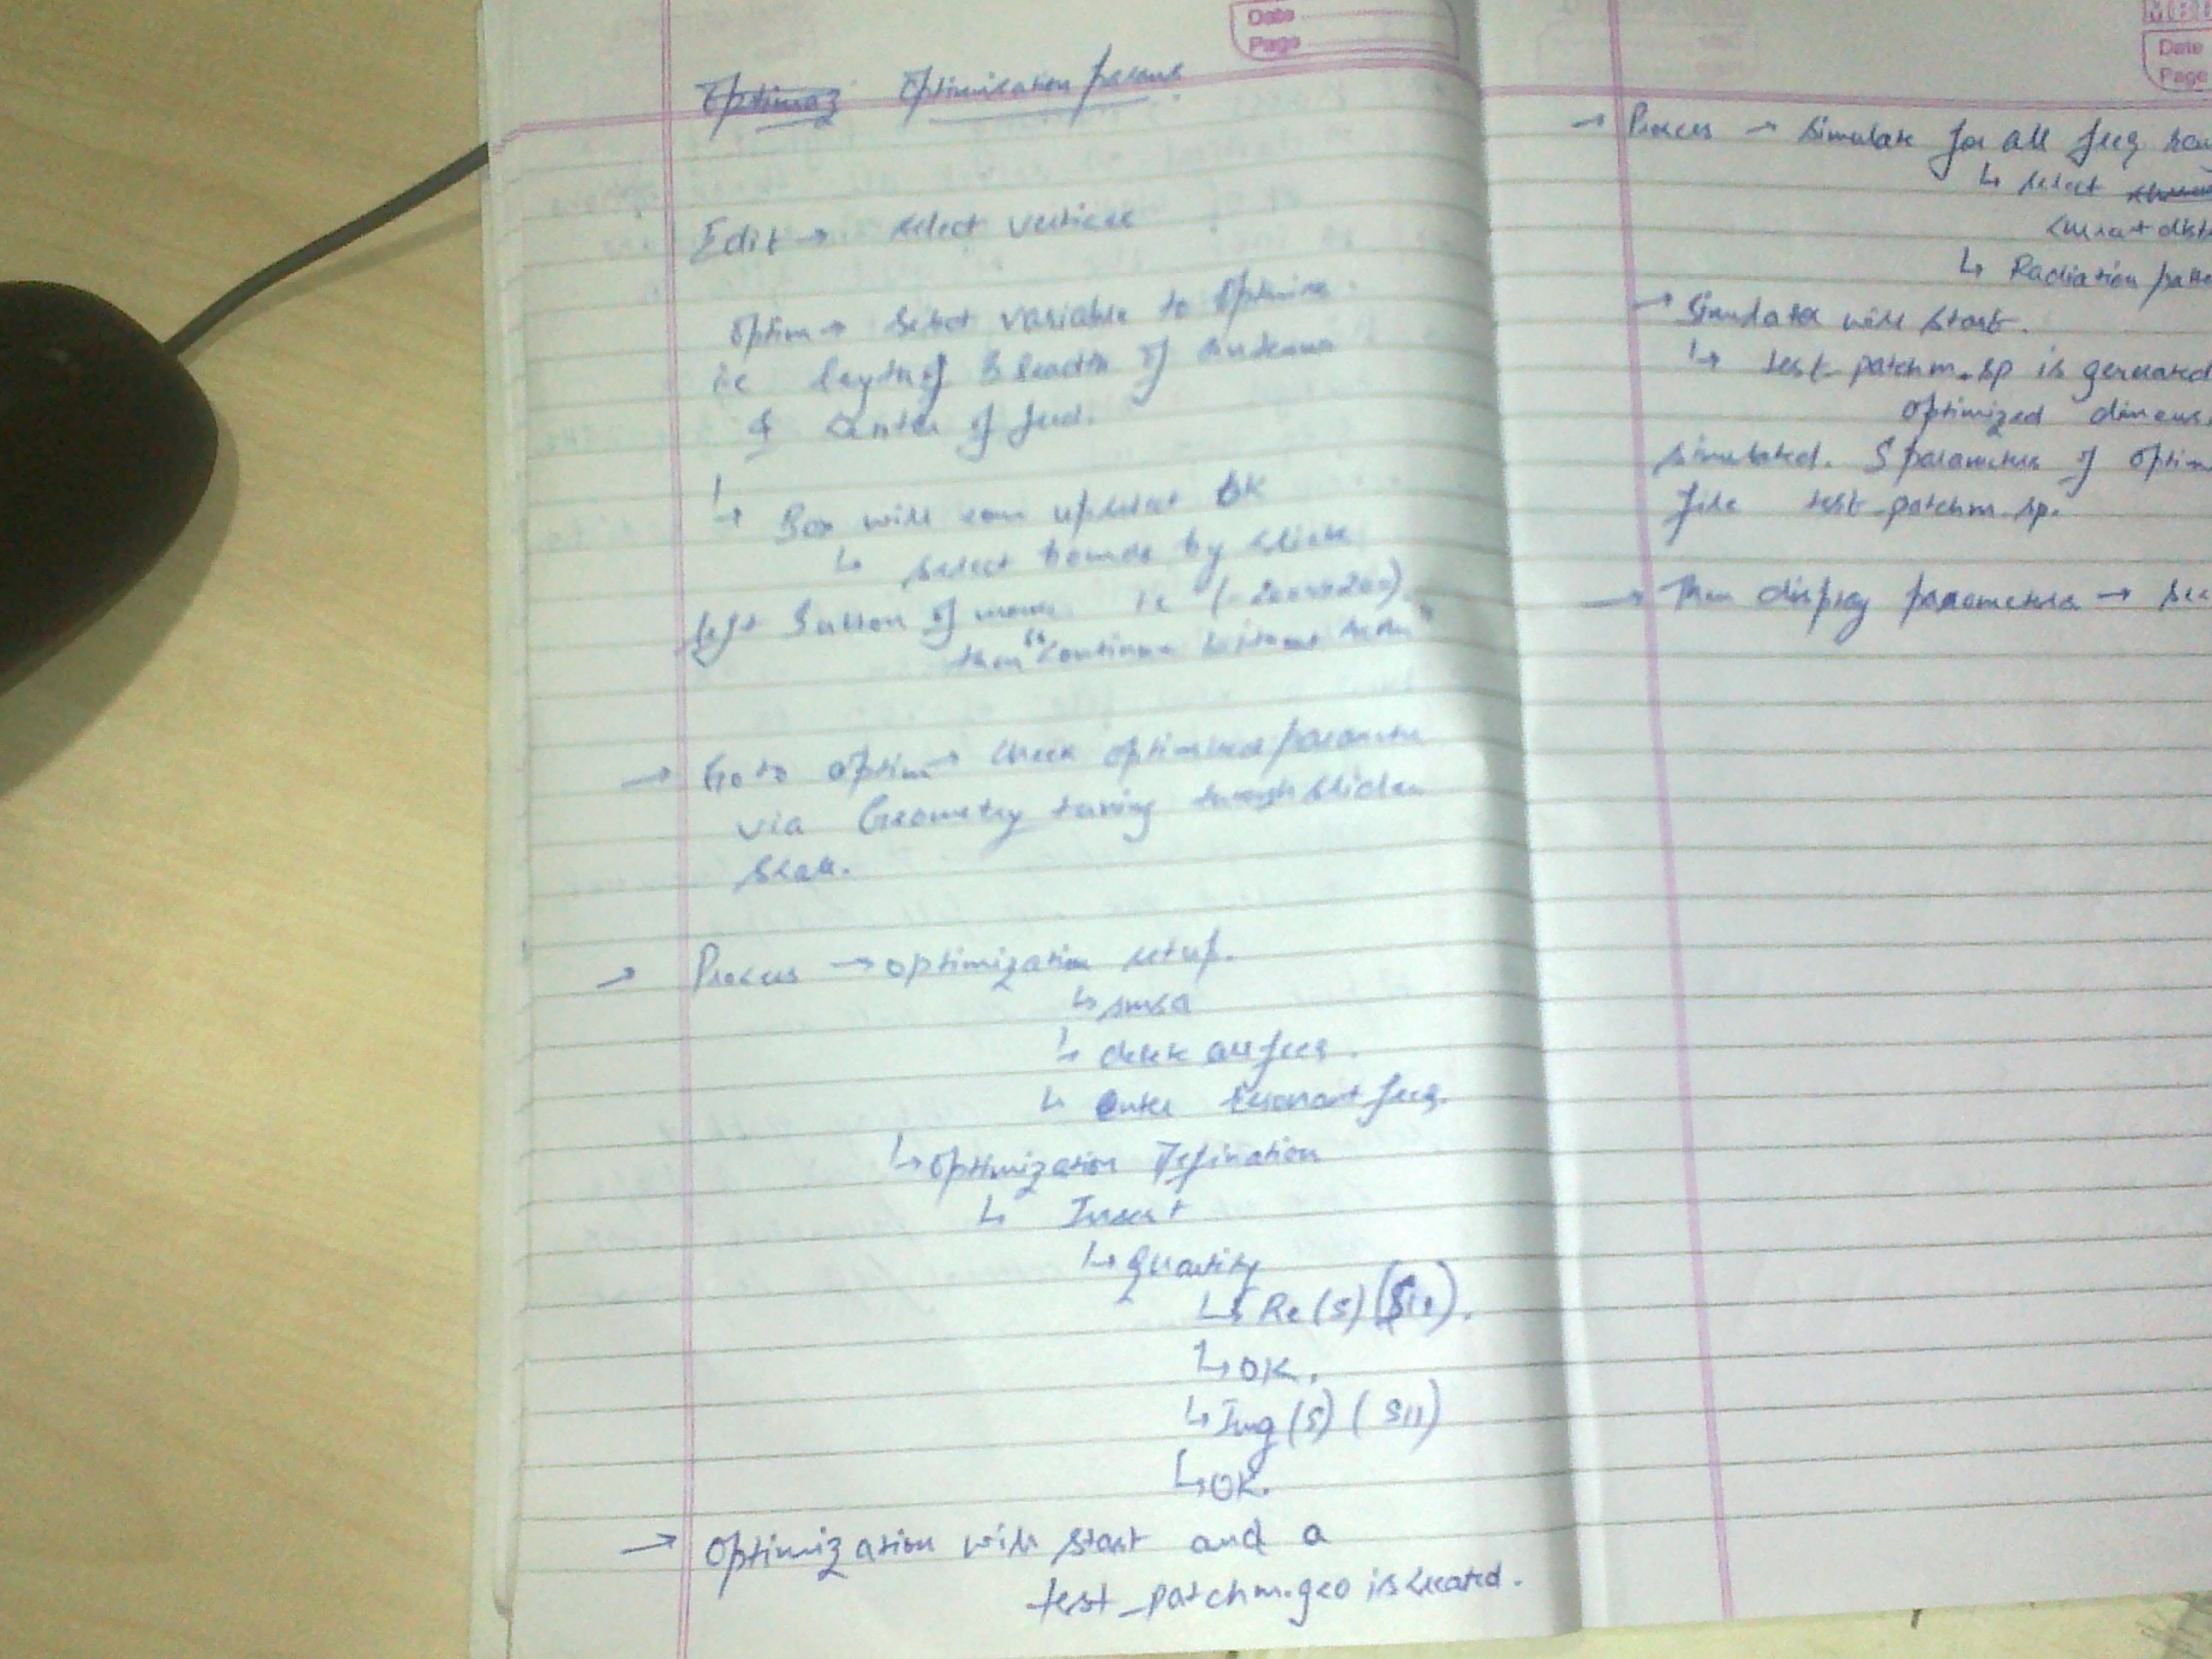 Date
Page
Optimiz Optimization process
Edit → select vertices
Optim → Select variable to optimize.
i.e length of Breadth of Antenna
& Center of feed.
↳ Box will come up select OK
↳ select bounds by slide
left Button of mouse i.e
then "Continue without"
→ Go to optim → Check optimized parameter
via Geometry tuning through sliders
scale.
→ Process → optimization setup.
↳ smsa
↳ delete all freq.
↳ enter resonant freq.
↳ optimization Defination
↳ Insert
↳ Quantity
↳ Re(S) (S11).
↳ OK.
↳ Img(S) (S11)
↳ OK.
→ Optimization will start and a
test_patchm.geo is created.
Date
Page
→ Process → Simulate for all freq
↳ select
current dist
↳ Radiation patte
→ Simulation will start.
↳ test_patchm.sp is generated
optimized dimens.
simulated. S parameters of optim
file test_patchm.sp.
→ Then display parameters →